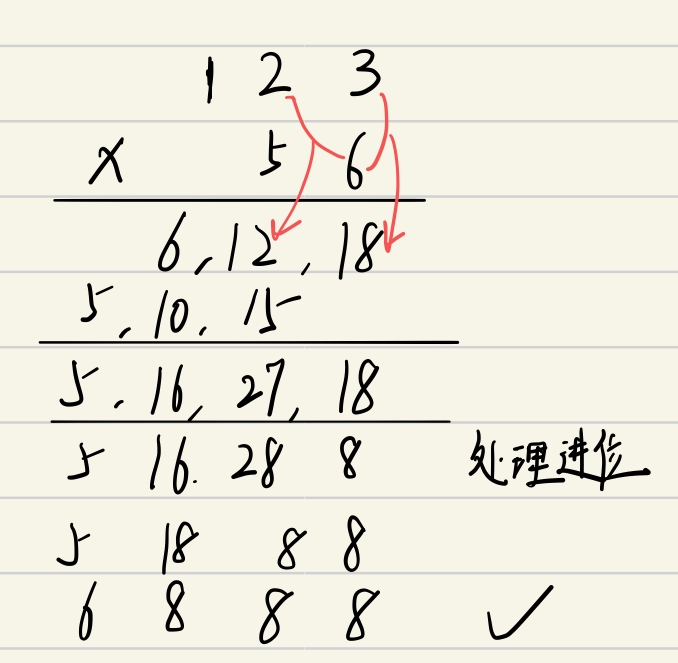 1 2 3
× 5 6
6, 12, 18
5, 10, 15
5, 16, 27, 18
5 16. 28 8 处理进位
5 18 8 8
6 8 8 8 ✓